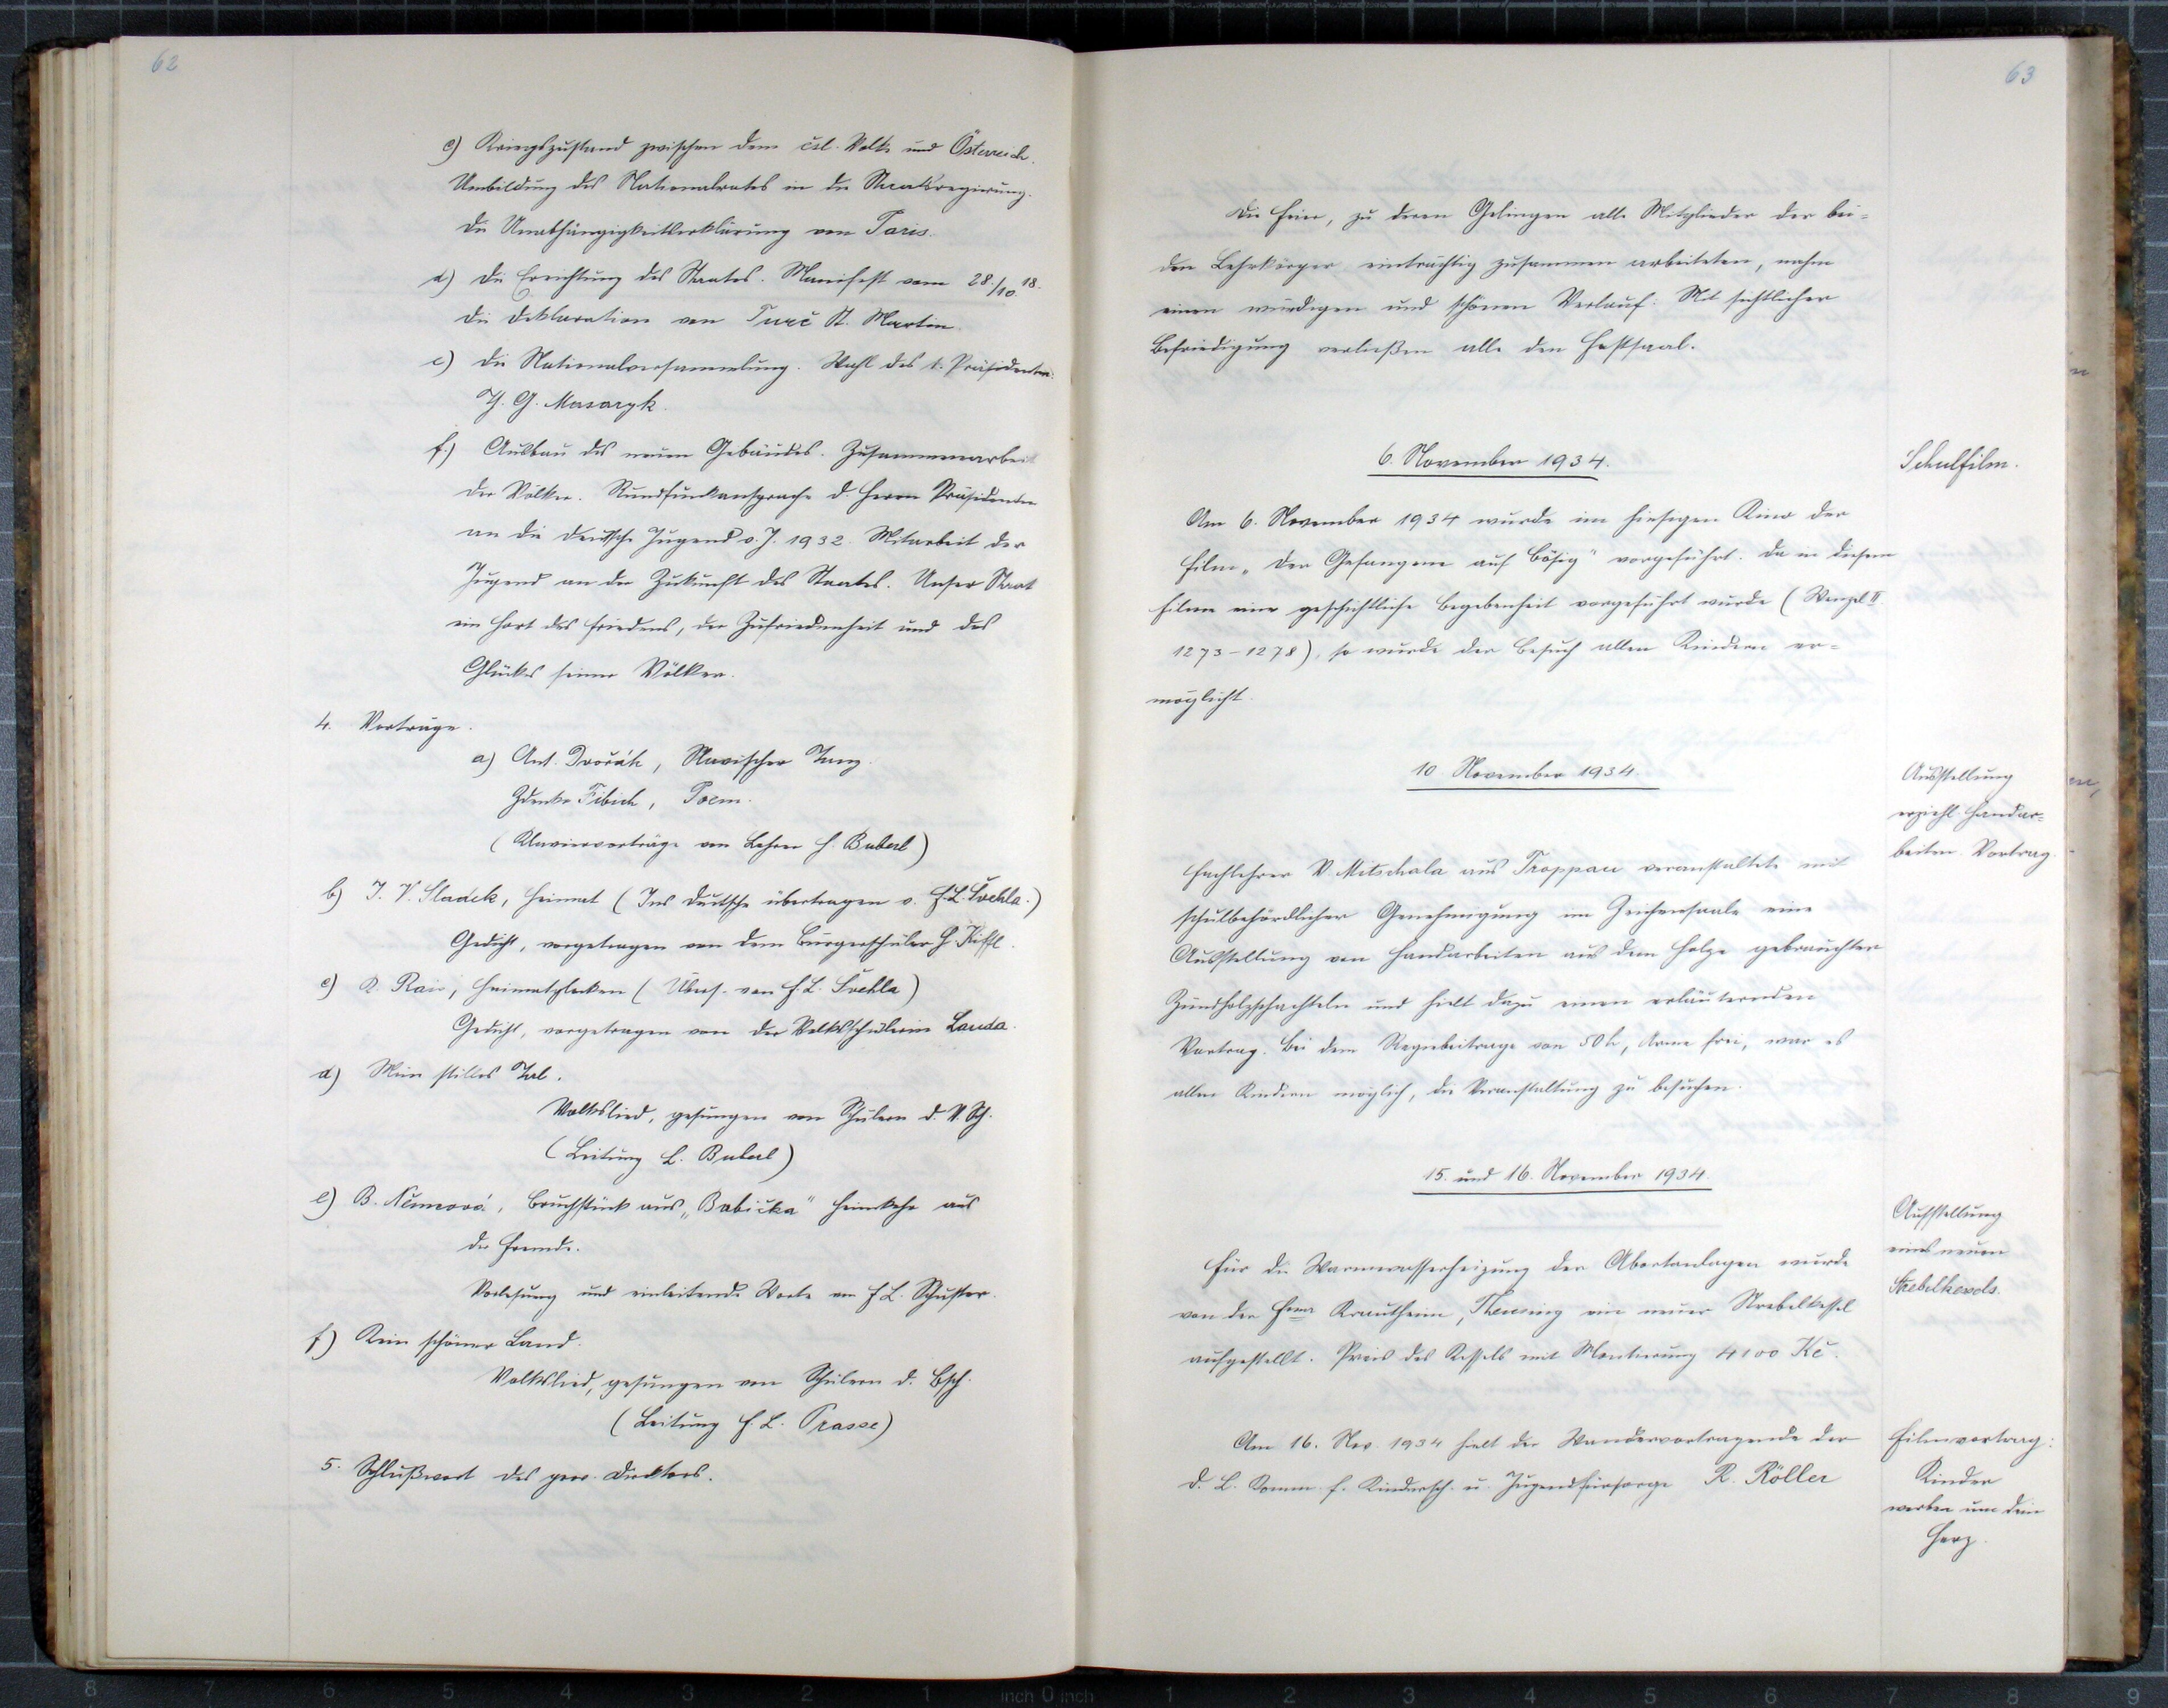 62
c) Kriegszustand zwischen dem čsl. Volke und Österreich.
Umbildung des Nationalrates in die Staatsregierung.
Die Unabhängigkeitserklärung von Paris.
d) Die Errichtung des Staates. Manifest vom 28./10. 18.
Die Deklaration von Turč St. Martin
e) Die Nationalversammlung. Wahl des 1. Präsidenten:
T. G. Masaryk.
f.) Ausbau des neuen Gebäudes. Zusammenarbeit
der Völker. Rundfunkansprache d. Herrn Präsidenten
an die deutsche Jugend v. J. 1932. Mitarbeit der
Jugend an der Zukunft des Staates. Unser Staat
ein Hort des Friedens, der Zufriedenheit und des
Glückes seiner Völker.
4. Vorträge.
a) Ant. Dvořák, Slavischer Tanz.
Zdenko Fibich, Poem.
(Klaviervorträge von Lehrer H. Buberl)
b) J. V. Sladek, Heimat (Ins Deutsche übertragen v. F. L. Švehla.)
Gedicht, vorgetragen von dem Bürgerschüler H.
c) K. Rais, Heimatglocken (Übers. von F. L. Švehla)
Gedicht, vorgetragen von der Volksschülerin Landa.
d) Mein stilles Tal.
Volkslied, gesungen von Schülern d. V. Sch.
(Leitung L. Buberl)
e) B. Němcová, Bruchstück aus „Babička" Heimkehr aus
der Fremde.
Vorlesung und einleitende Worte von F. L. Schuster.
f) Kein schöner Land.
Volkslied, gesungen von Schülern d. Bsch.
(Leitung F. L. Prasse)
5. Schlußwort des prov. Direktors.
63
Die Feier, zu deren Gelingen alle Mitglieder der bei=
den Lehrkörper einträchtig zusammen arbeiteten, nahm
einen würdigen und schönen Verlauf. Mit sichtlicher
Befriedigung verließen alle den Festsaal.
6. November 1934.
Schulfilm.
Am 6. November 1934 wurde im hiesigen Kino der
Film „Der Gefangene auf Bösig" vorgeführt. Da in diesem
Filme eine geschichtliche Begebenheit vorgeführt wurde (Wenzel II
1273-1278), so wurde der Besuch allen Kindern er=
möglicht.
10 November 1934.
Ausstellung
erziehl. Handar=
beiten. Vortrag.
Fachlehrer V. Mitschala aus Troppau veranstaltete mit
schulbehördlicher Genehmigung im Zeichensaale eine
Ausstellung von Handarbeiten aus dem Holze gebrauchter
Zündholzschachteln und hielt dazu einen erläuternden
Vortrag. Bei dem Regiebeitrage von 50 h, Arme frei, war es
allen Kindern möglich, die Veranstaltung zu besuchen.
15. und 16. November 1934.
Aufstellung
eines neuen
Strebelkessels.
Für die Warmwasserheizung der Abortanlagen wurde
von der Firma Krautheim, Theusing ein neuer Strebelkessel
aufgestellt. Preis des Kessels mit Montierung 4100 Kč.
Filmvortrag:
Kinder
werben um dein
Herz.
Am 16. Nov. 1934 hielt der Wandervortragende der
d. L. Komm. f. Kindersch. u. Jugendfürsorge R. Röller